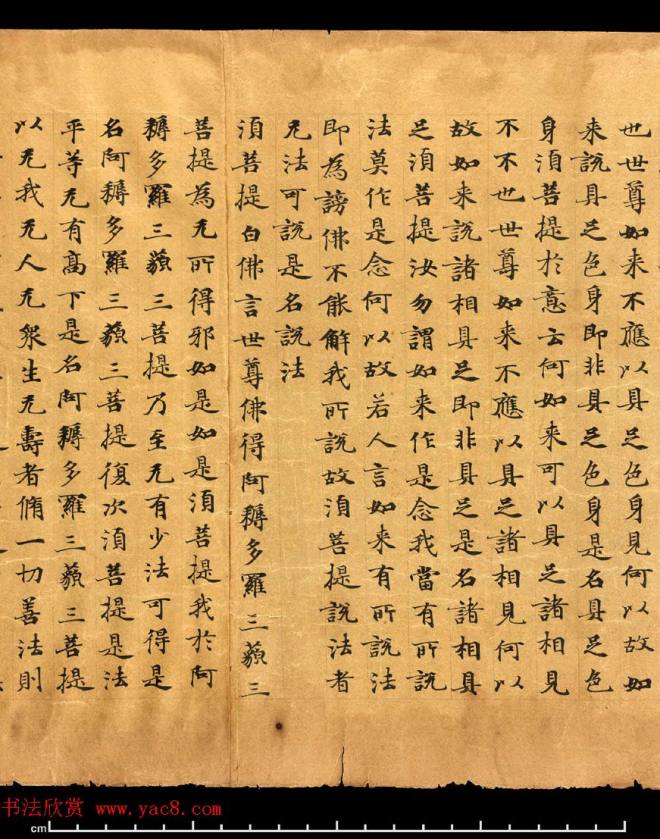 也世尊如来不應以具足色身見何以故如
来說具足色身即非具足色身是名具足色
身湏菩提於意云何如来可以具足諸相見
不不也世尊如来不應以具足諸相見何以
故如来說諸相具足即非具足是名諸相具
足湏菩提汝勿謂如来作是念我當有所說
法莫作是念何以故若人言如来有所說法
即為謗佛不能解我所說故湏菩提說法者
无法可說是名說法
湏菩提白佛言世尊佛得阿耨多羅三藐三
菩提為无所得邪如是如是湏菩提我於阿
耨多羅三藐三菩提乃至无有少法可得是
名阿耨多羅三藐三菩提復次湏菩提是法
平等无有高下是名阿耨多羅三藐三菩提
以无我无人无衆生无壽者脩一切善法則
书法欣赏 www.yac8.com
cm